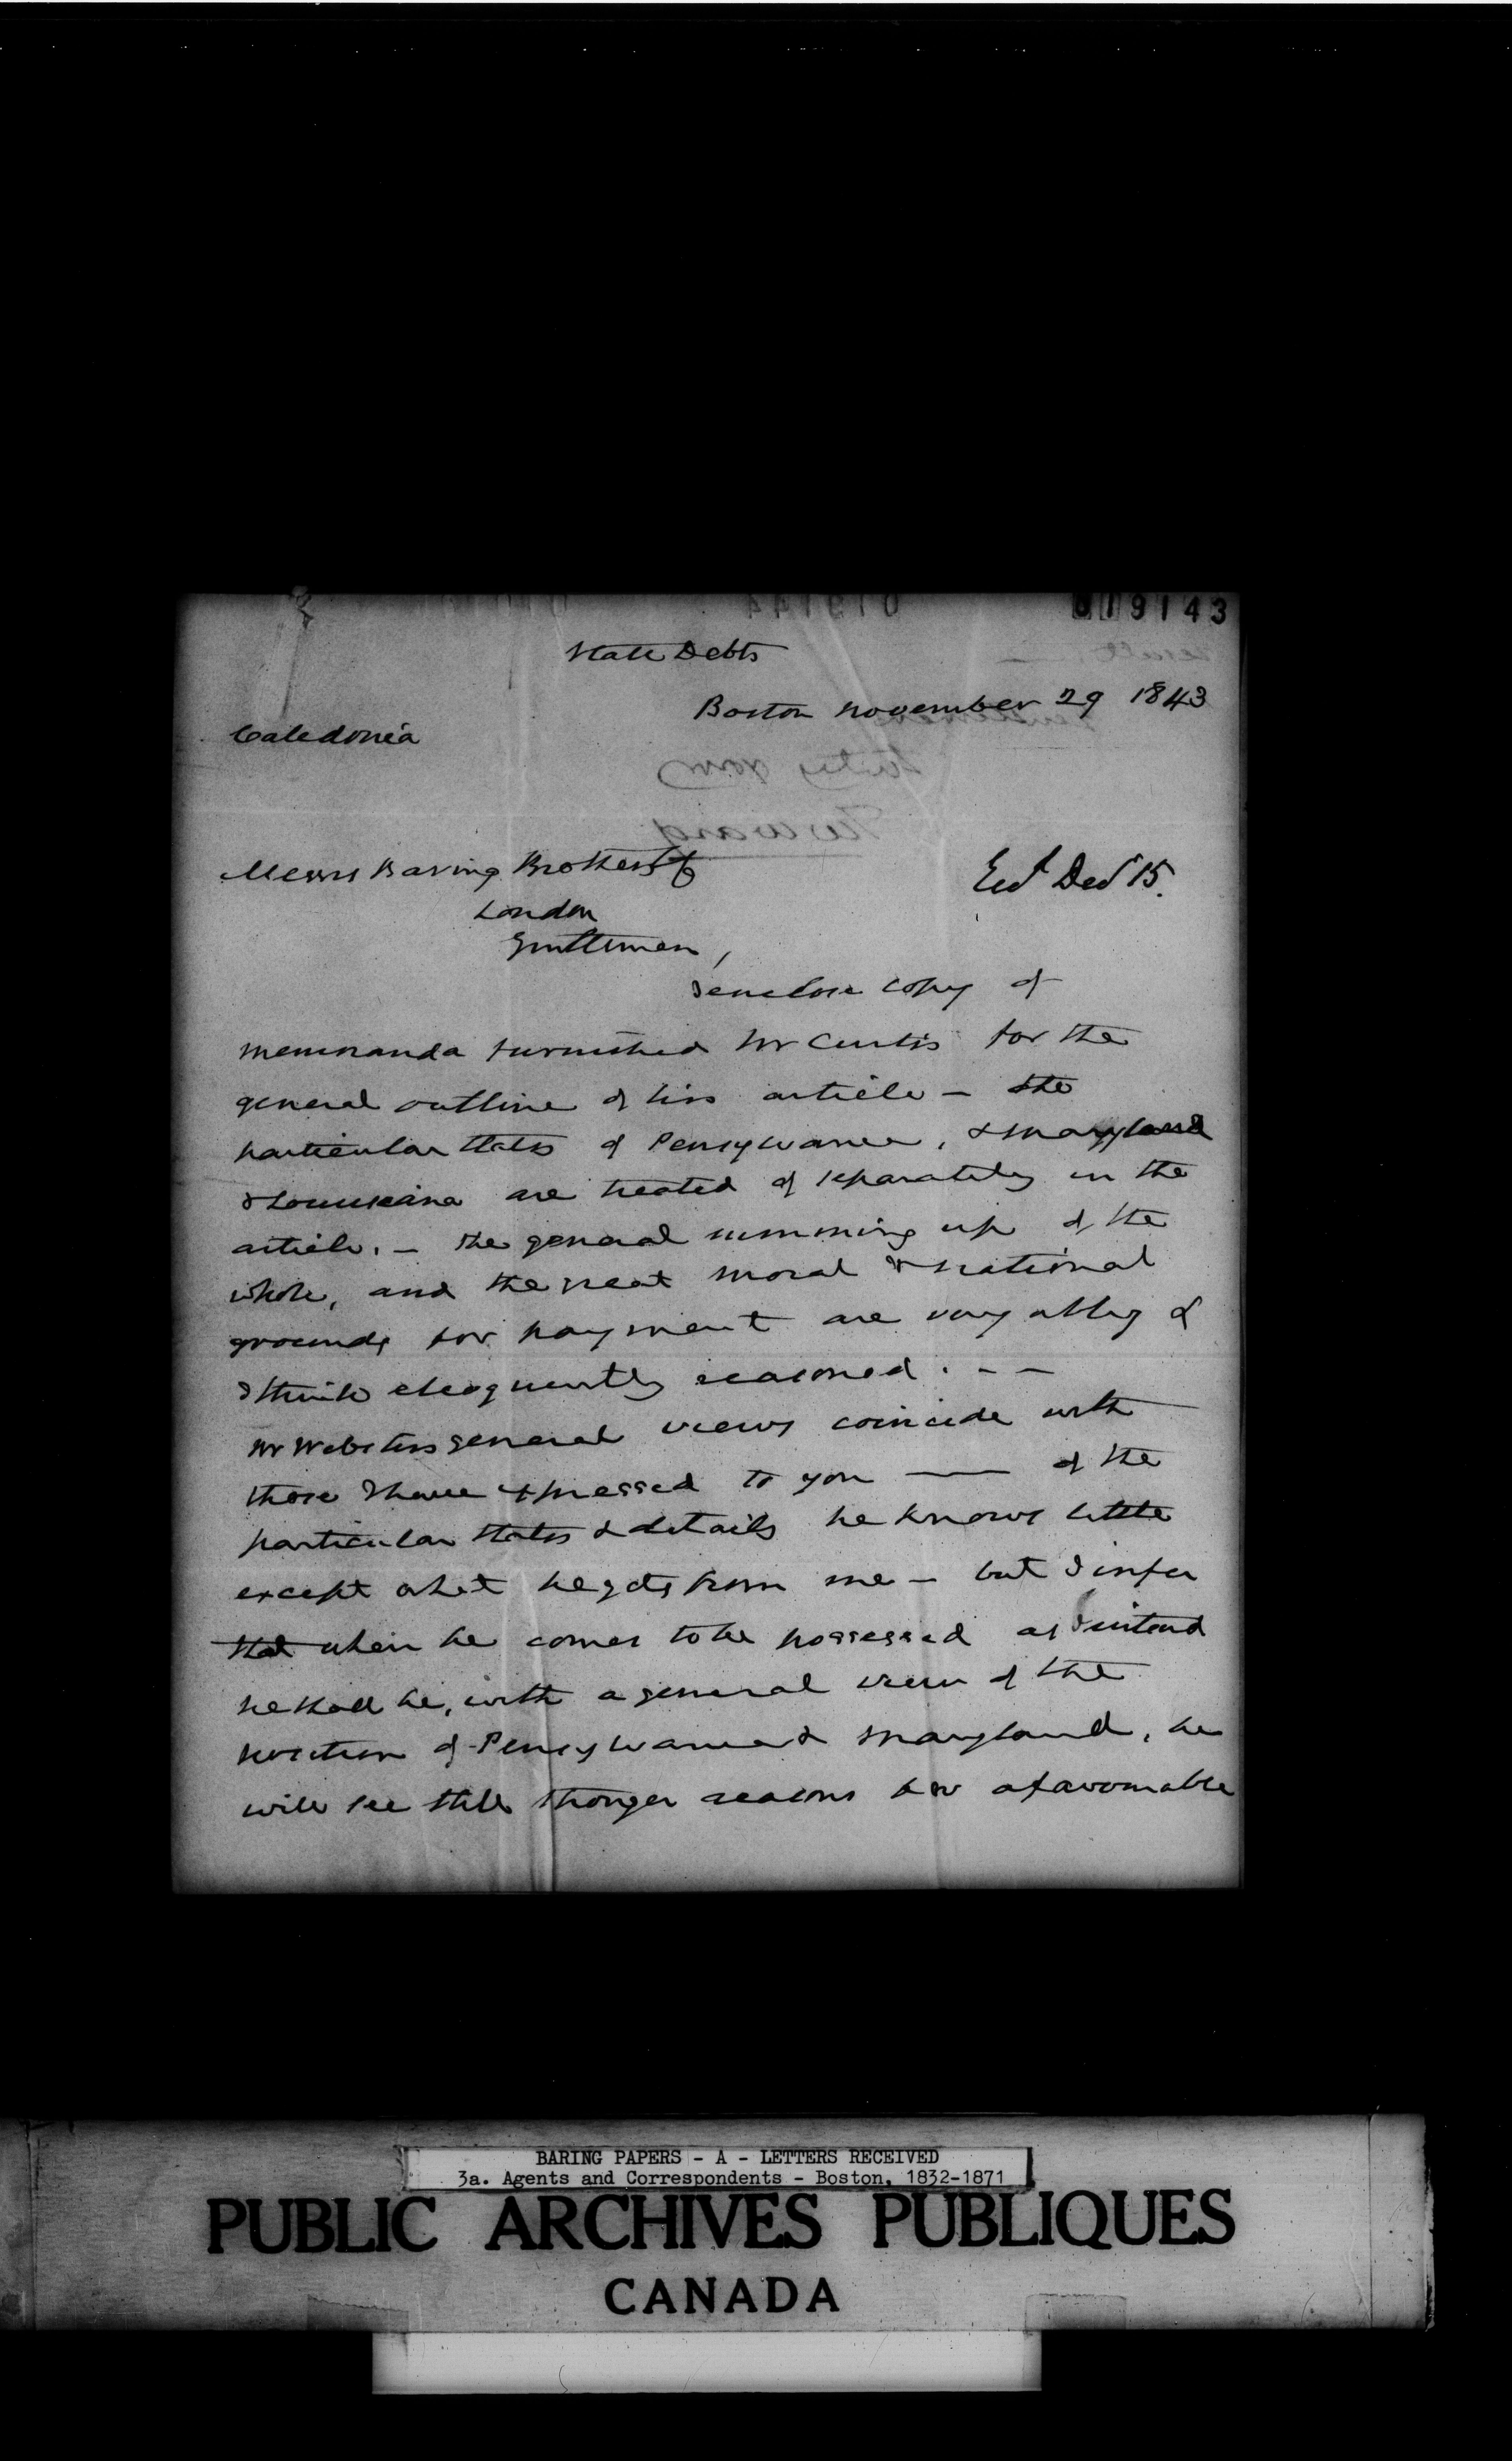 019143
State Debts
Boston november 29 1843
Caledonia
Messrs Baring Brothers & Co
London
Gentlemen,
Recd Decr 15.
I enclose copy of
memoranda furnished Mr Curtis for the
general outline of his article — the
particular States of Pensylvania, & Maryland
& Louisiana are treated of separately in the
article. — the general summing up of the
whole, and the great moral & national
grounds for payment are very ably &
I think eloquently reasoned. — —
Mr Websters general views coincide with
those I have expressed to you — of the
particular States & details he knows little
except what he gets from me — but I infer
that when he comes to be possessed as I intend
he shall be, with a general view of the
position of Pensylvania & Maryland, he
will see still stronger reasons for a favourable
BARING PAPERS - A - LETTERS RECEIVED
3a. Agents and Correspondents - Boston, 1832-1871
PUBLIC ARCHIVES PUBLIQUES
CANADA